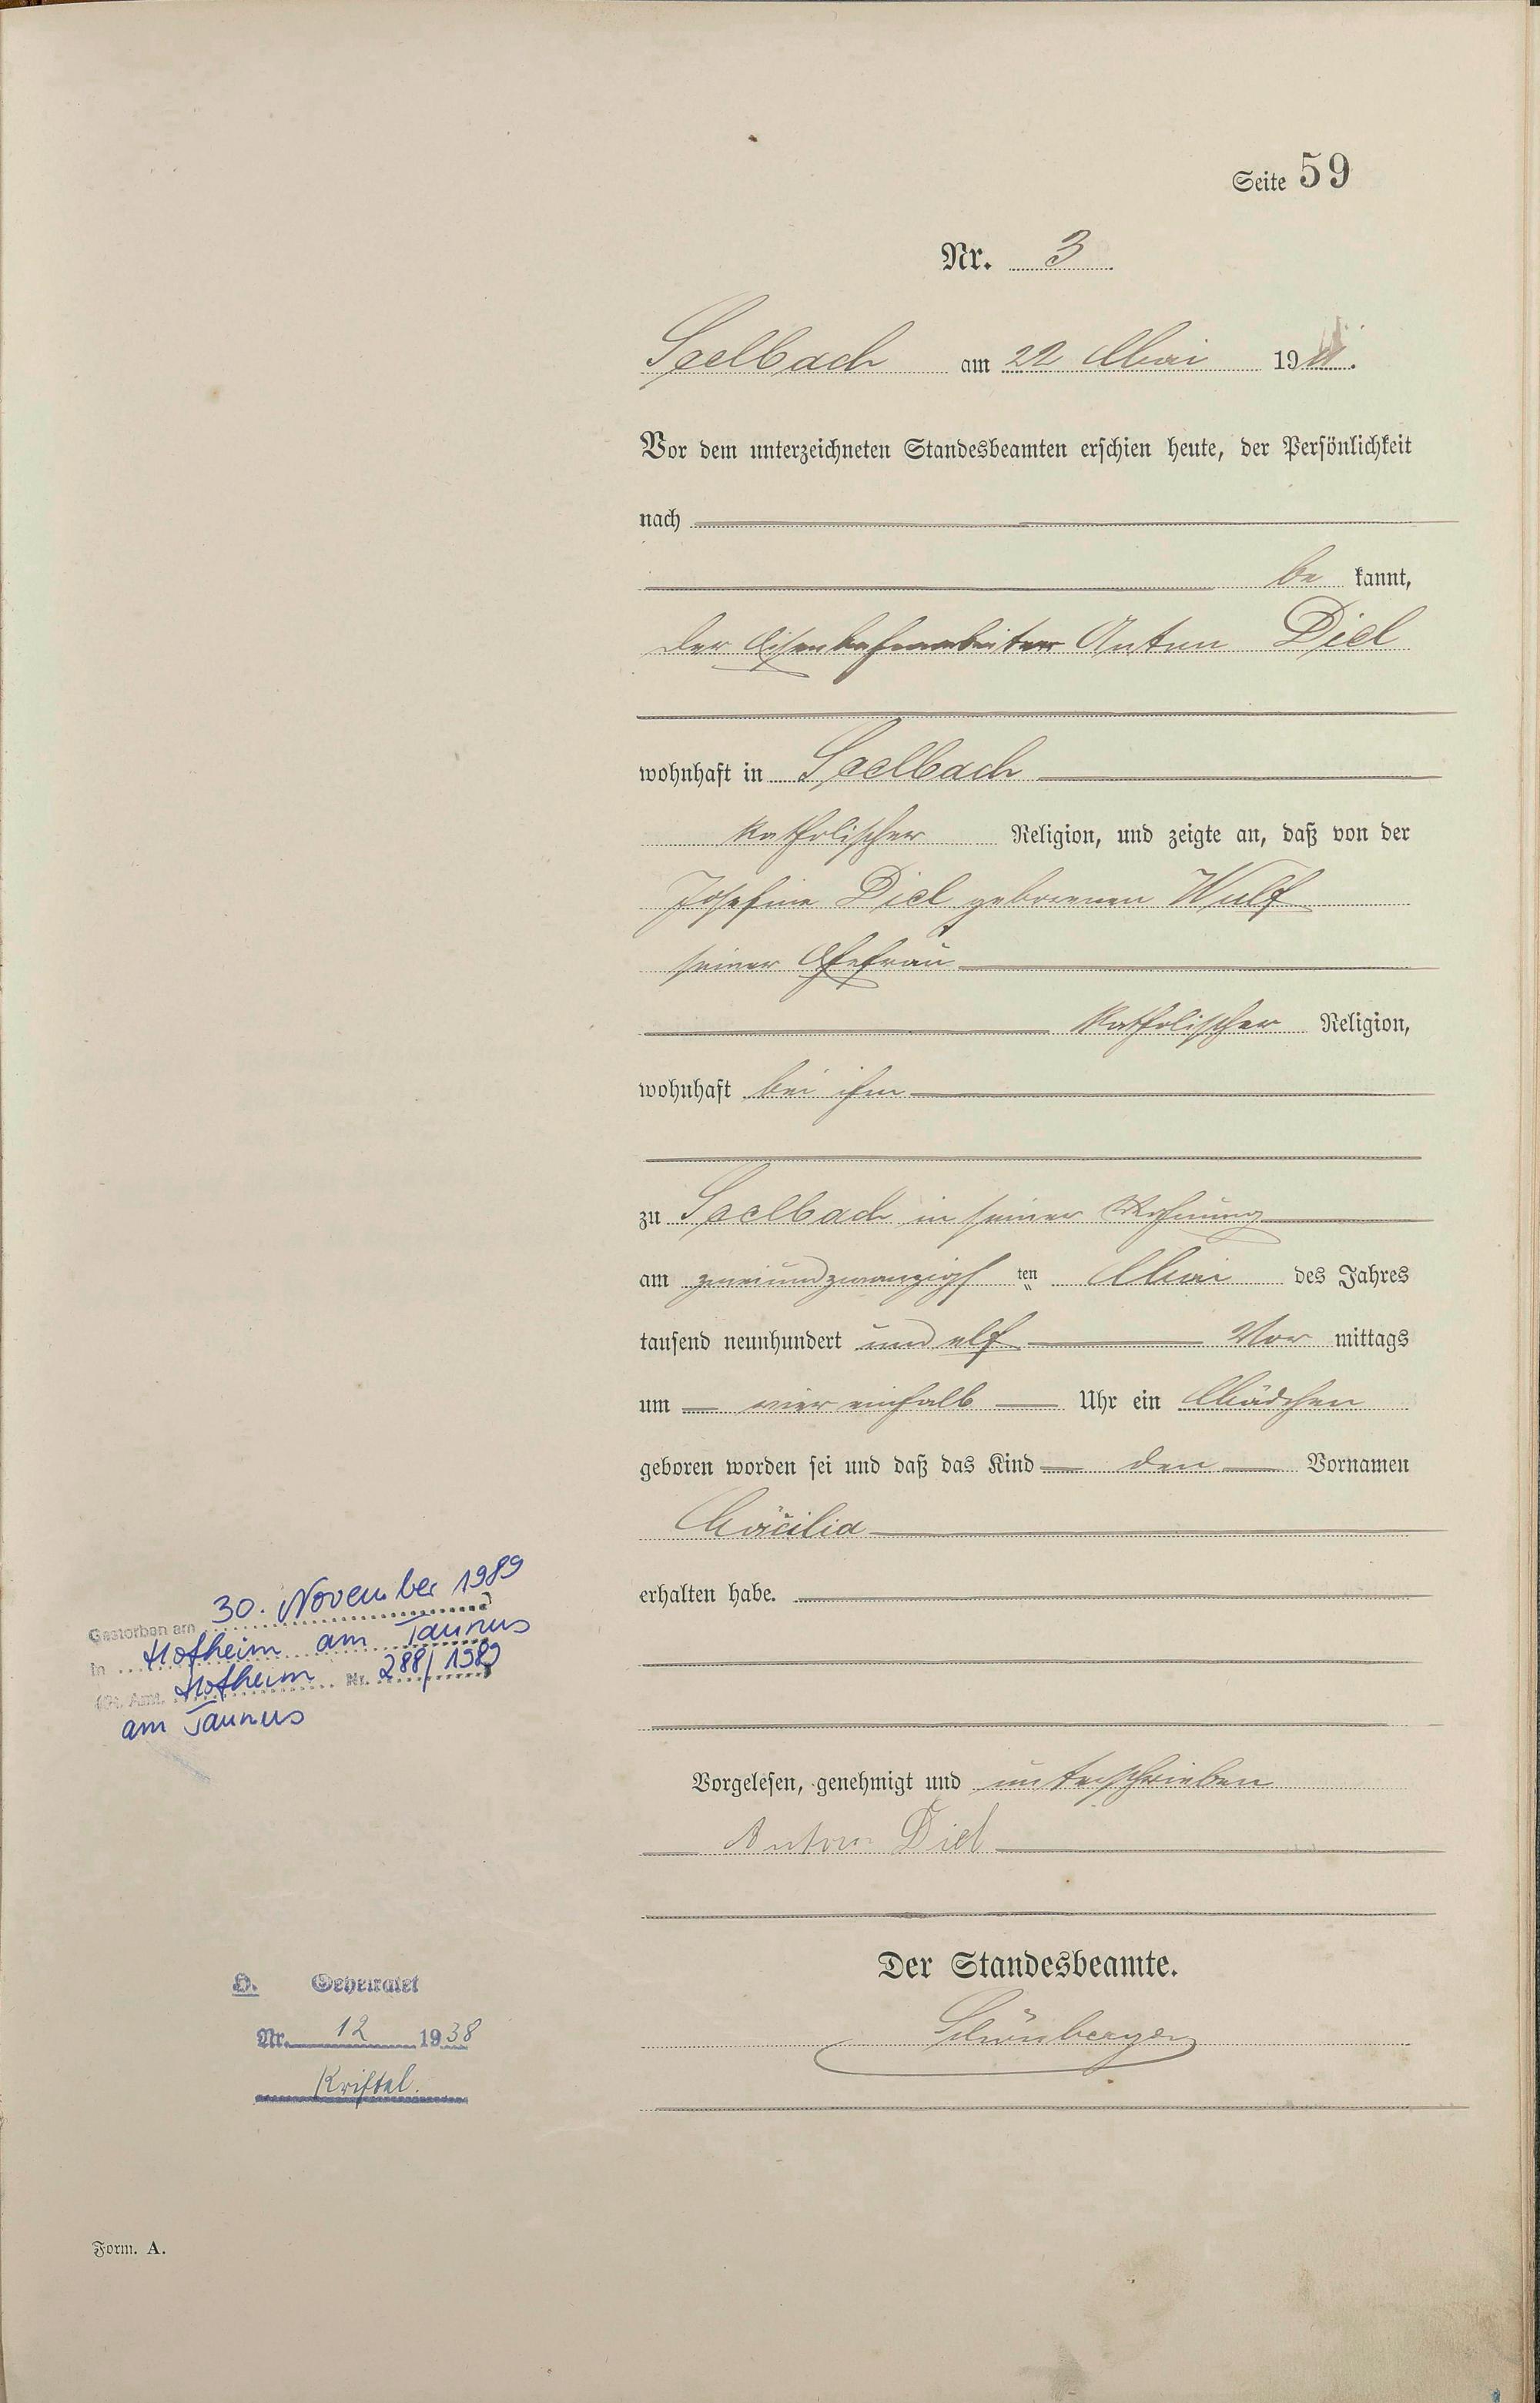 Seite 59
Nr. 3
Seelbach am 22 Mai 1911.
Vor dem unterzeichneten Standesbeamten erschien heute, der Persönlichkeit
nach
be kannt,
der Eisenbahnarbeiter Anton Diel
wohnhaft in Seelbach
katholischer Religion, und zeigte an, daß von der
Josefine Diel geborenen Wulf
seiner Ehefrau
katholischer Religion,
wohnhaft bei ihm
zu Seelbach in seiner Wohnung
am zweiundzwanzigs ten Mai des Jahres
tausend neunhundert und elf Vor mittags
um vier einhalb Uhr ein Mädchen
geboren worden sei und daß das Kind den Vornamen
Cäcilia
erhalten habe.
Gestorben am 30. November 1989
in Hofheim am Taunus
St. Amt. Hofheim Nr. 288/1989
am Taunus
Vorgelesen, genehmigt und unterschrieben
Anton Diel
Der Standesbeamte.
Schönberger
H. Geheiratet
Nr. 12 1938
Kriftel.
Form. A.